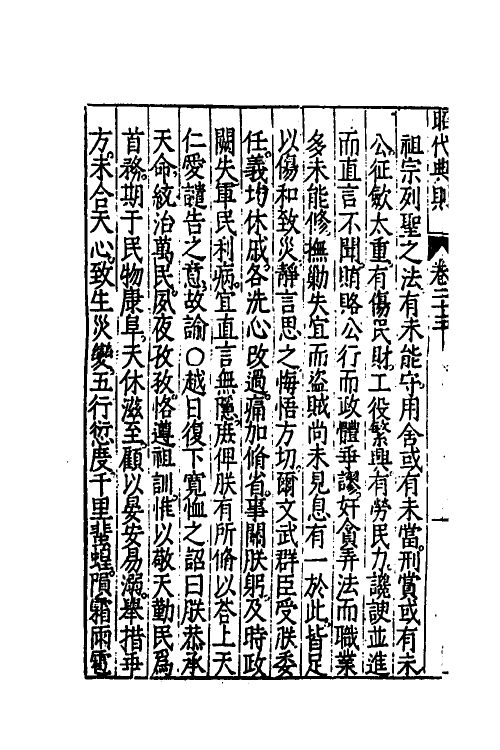 昭代典則　卷二十三
祖宗列聖之法有未能守用舍或有未當刑賞或有未
公征斂太重有傷民財工役繁興有勞民力讒諛並進
而直言不聞賄賂公行而政體乖謬奸貪弄法而職業
多未能修撫勦失宜而盜賊尚未見息有一於此皆足
以傷和致災靜言思之悔悟方切爾文武群臣受朕委
任義均休戚各洗心改過痛加脩省事關朕躬及時政
闕失軍民利病宜直言無隱庶俾朕有所脩以荅上天
仁愛譴告之意故諭○越日復下寬恤之詔曰朕恭承
天命統治萬民夙夜孜孜恪遵祖訓惟以敬天勤民爲
首務期于民物康阜天休滋至顧以晏安易溺舉措乖
方未合天心致生災變五行愆度千里蜚蝗隕霜雨雹